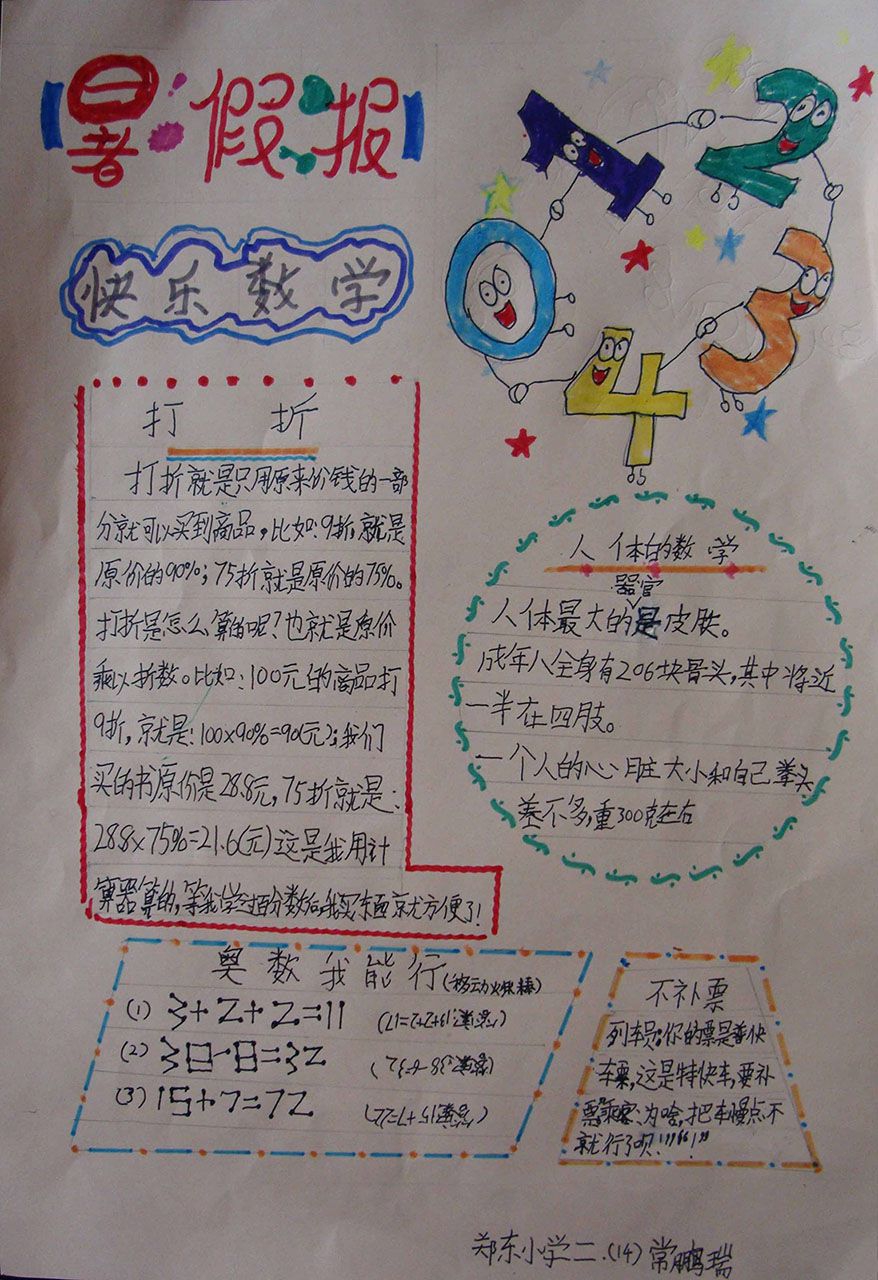 暑假报
快乐数学
0 1 2 3 4
打 折
打折就是只用原来价钱的一部
分就可以买到商品，比如：9折，就是
原价的90%；75折就是原价的75%。
打折是怎么算的呢？也就是原价
乘以折数。比如：100元的商品打
9折，就是：100×90%=90(元)；我们
买的书原价是28.8元，75折就是：
28.8×75%=21.6(元)这是我用计
算器算的，等我学过百分数后，我买东西就方便了！
人体的数学
人体最大的器官是皮肤。
成年人全身有206块骨头，其中将近
一半在四肢。
一个人的心脏大小和自己拳头
差不多，重300克左右
奥数我能行(移动火柴棒)
(1) 3+2+2=11 (答案：19+2+2=17)
(2) 38-8=32 (答案：38-6=32)
(3) 15+7=72 (答案：15+7=22)
不补票
列车员：你的票是普快
车票，这是特快车，要补
票，乘客：为啥，把车慢点不
就行了呗！"“！”
郑东小学二.(14) 常鹏瑞